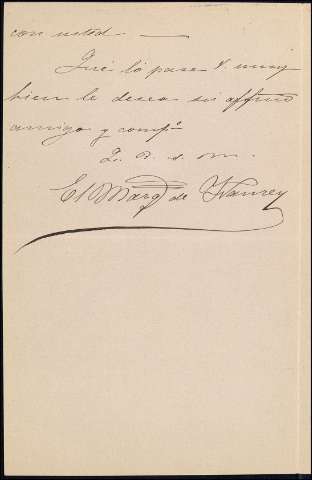 con usted.
Que lo pase V. muy
bien le desea su affmo
amigo y compº
Q. B. s. m.
El Marq de